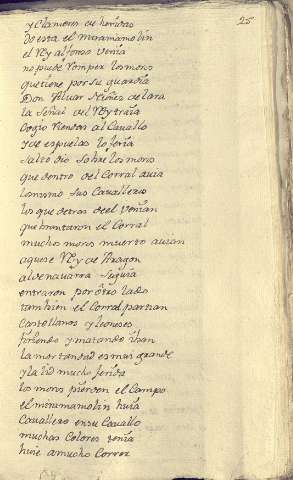 25
y clamores de heridas
do esta el miramamolin
el Rey Alfonso venia
no puede romper los moros
que tiene por su guardia
Don Alvar Nuñez de lara
la señal del Rey traia
Cogio riendas al Cavallo
y de espuelas lo feria
Salto dio sobre los moros
que dentro del Corral avia
lo mismo sus Cavalleros
los que detras de el venian
que quantaron el Corral
muchos moros muerto avian
aquese Rey de Aragon
al de navarra seguia
entraron por otro lado
tambien el Corral partian
Castellanos y leoneses
firiendo y matando iban
la mortandad es mas grande
y la lid mucho ferida
los moros pierden el Campo
el miramamolin huia
Cavallero en su Cavallo
muchas Colores tenia
huie a mucho Correr